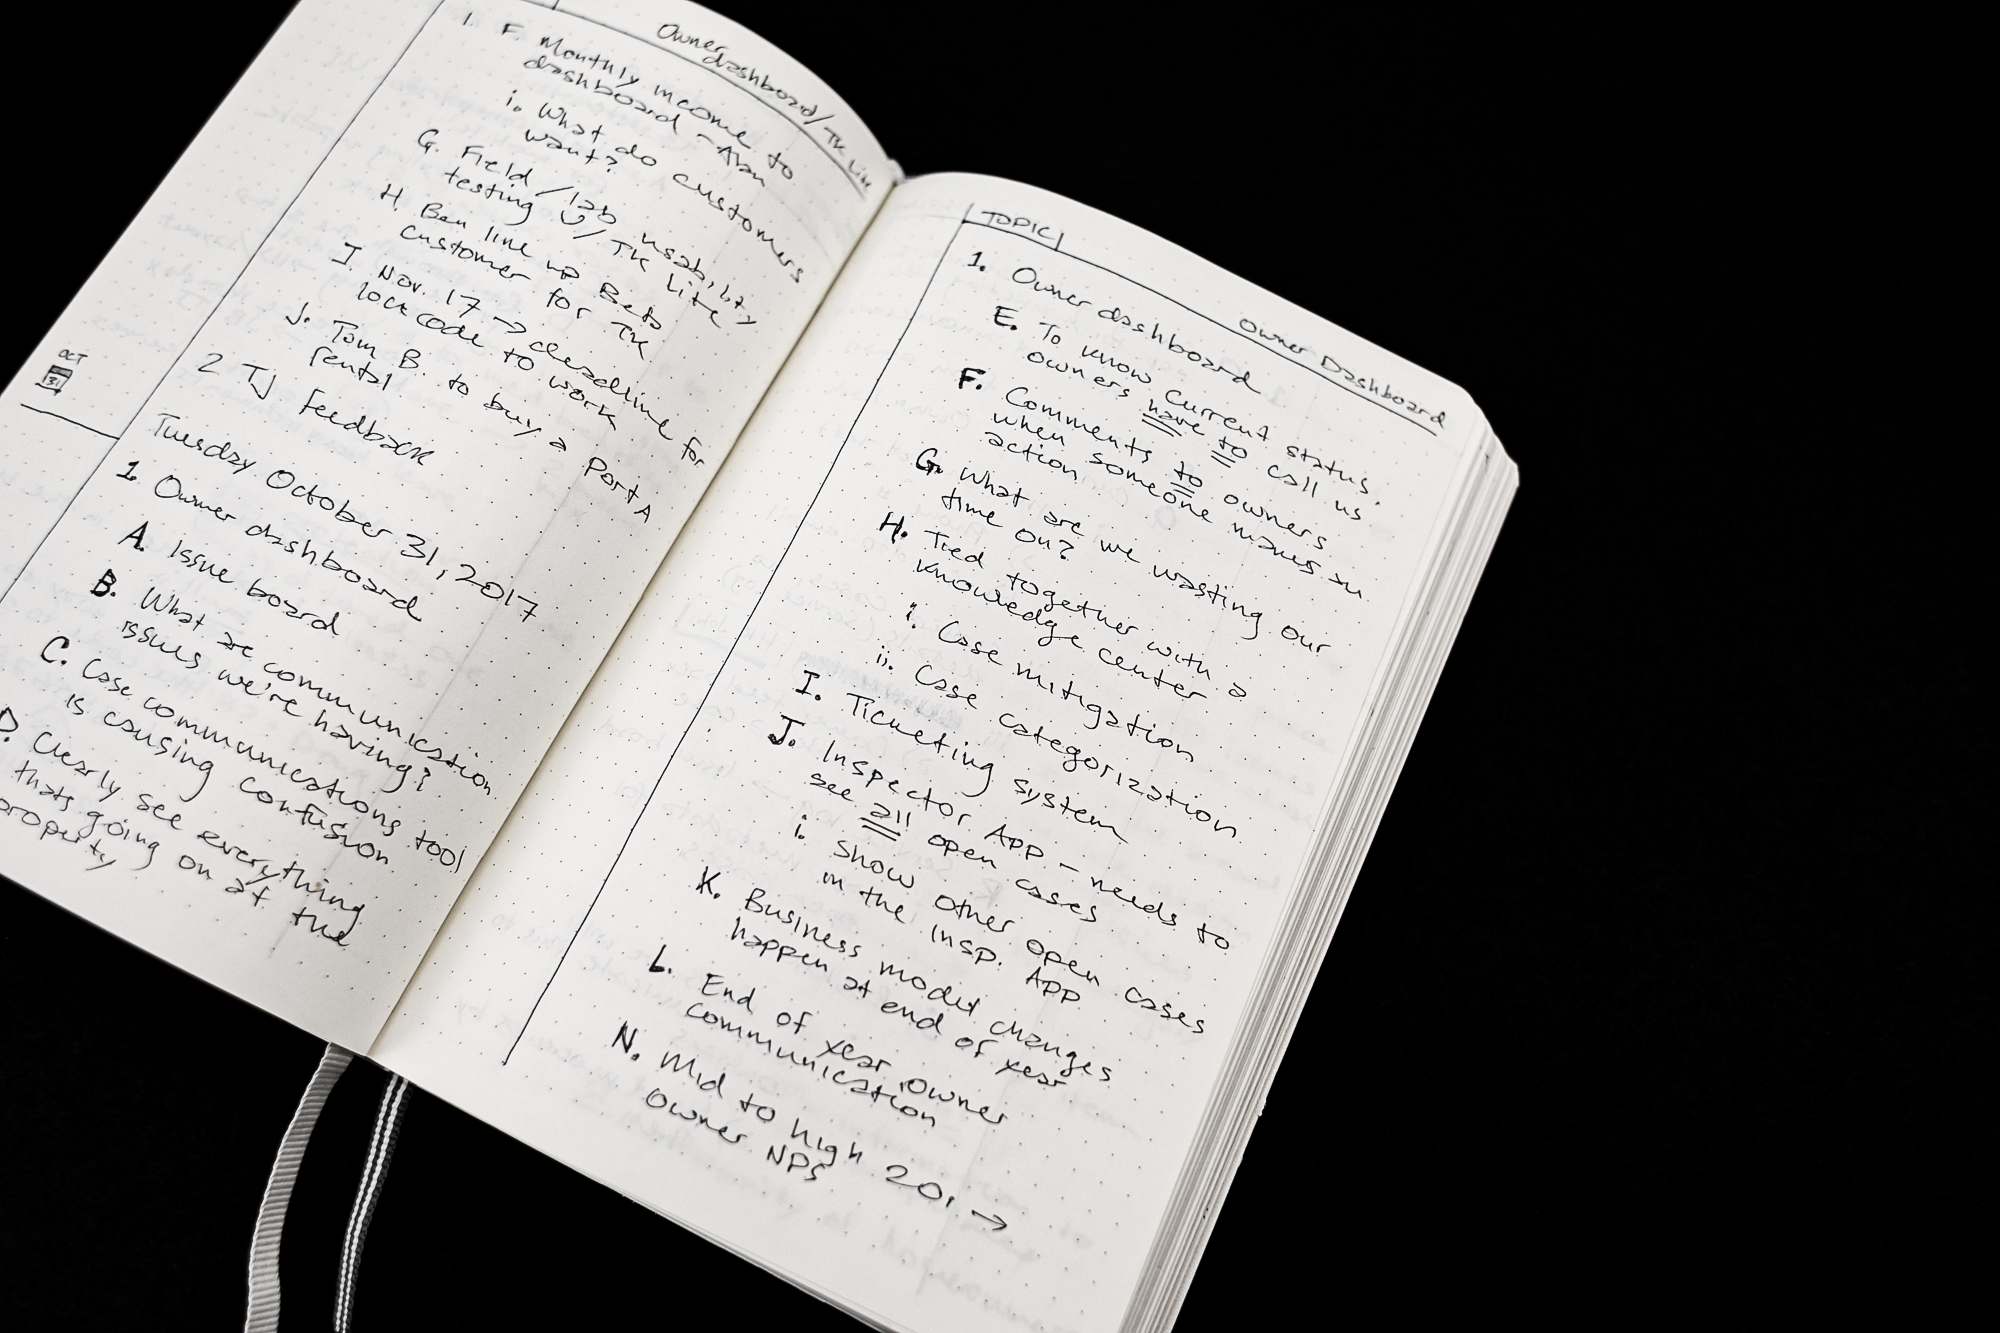 Owner
dashboard/TK Lite
1. F. Monthly income to
dashboard - Alan
i. What do customers
want?
G. Field/lab usability
testing w/ TK Lite
H. Ben line up Beta
customer for TK
I. Nov. 17 → deadline for
lock code to work
J. Tom B. to buy a Port A
rental
2 TJ Feedback
OCT
31
Tuesday October 31, 2017
1. Owner dashboard
A. Issue board
B. What are communication
issues we're having?
C. Case communications tool
is causing confusion
D. Clearly see everything
thats going on at the
property
TOPIC
Owner Dashboard
1. Owner dashboard
E. To know current status.
owners have to call us
F. Comments to owners
when someone makes an
action
G. What are we wasting our
time on?
H. Tied together with a
knowledge center
i. Case mitigation
ii. Case categorization
I. Ticketing system
J. Inspector App - needs to
see all open cases
i. Show other open cases
in the insp. App
K. Business model changes
happen at end of year
L. End of year owner
communication
N. Mid to high 20s →
Owner NPS